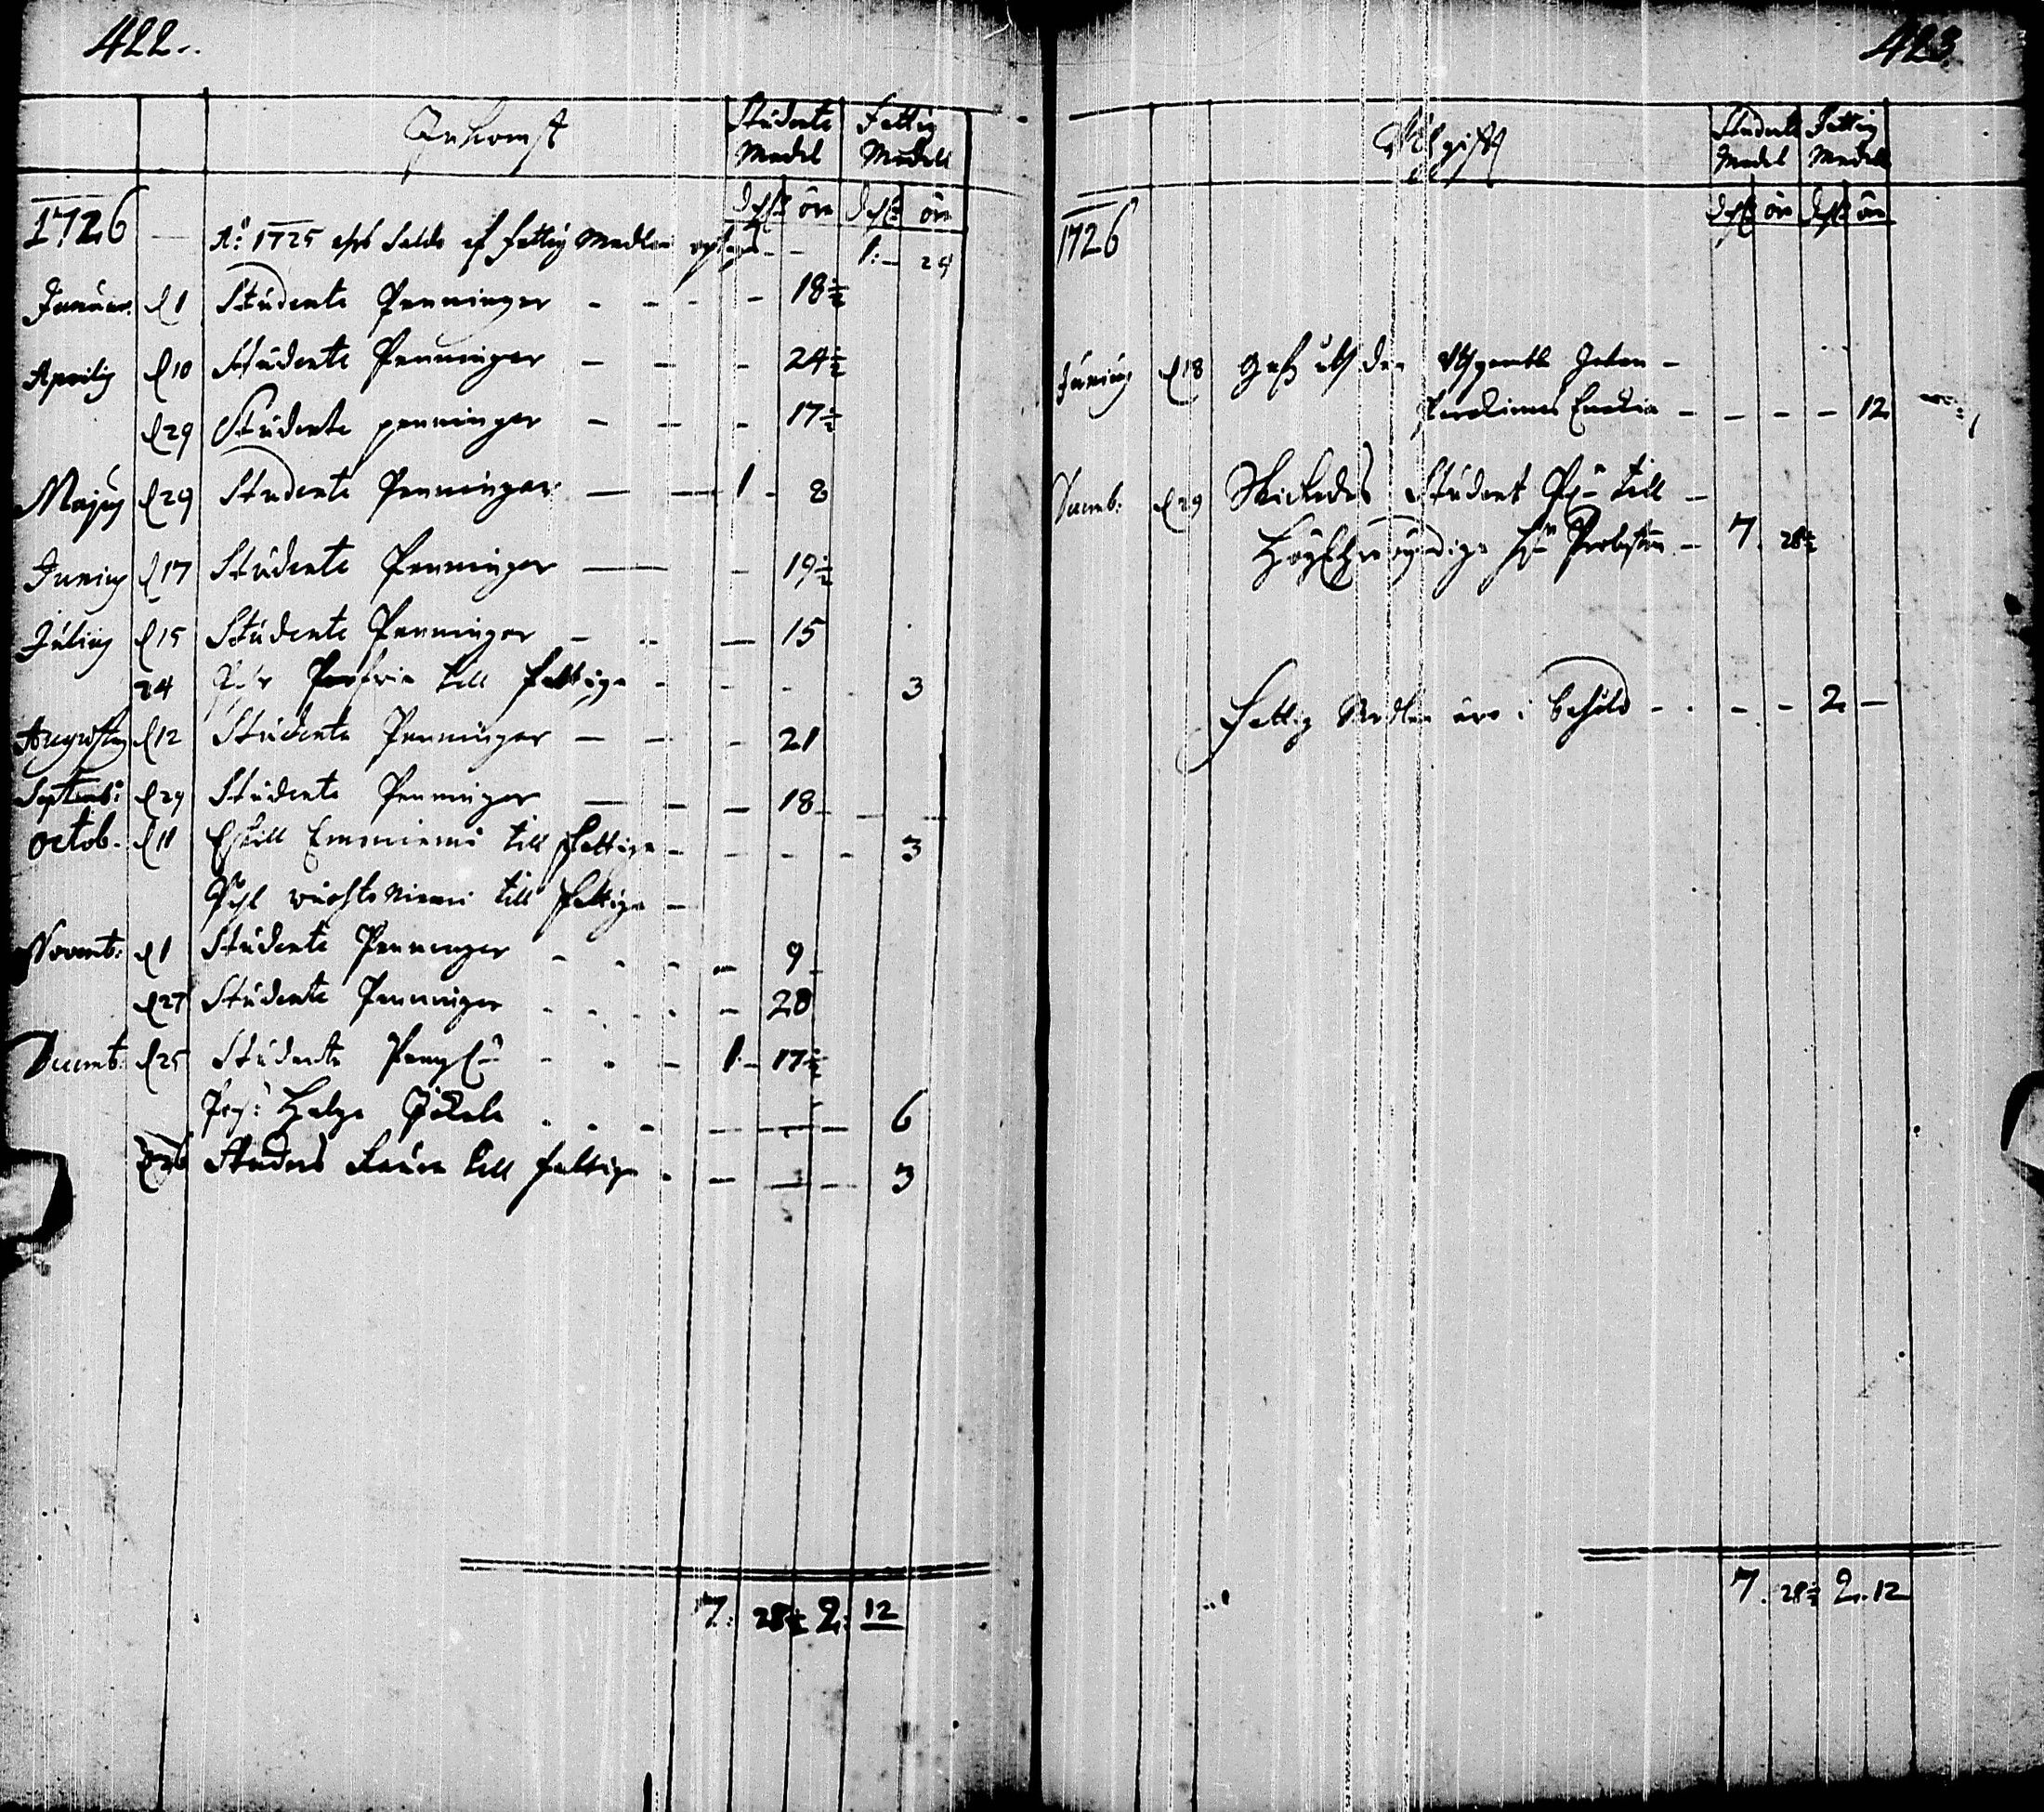 422.
Inkomst
Studente Medel
Fettig Medell
dlr öre dlr öre
1726 A:o 1725 Saldo af fettig Medlen 1: 29
Januar. d 1 Studente Penninger - - - - 18½
Aprilij d 10 Studente Penninger - - - 24½
d 29 Studente penninger - - - 17½
Majus d 29 Studente Penninger — — 1 - 8
Junius d 17 Studente Penninger — - 19½
Julius d 15 Studente Penninger - - — 15
24 till fettige - - - - 3
Augustus d 12 Studente Penninger - - - 21
Septemb: d 29 Studente Penninger — - - 18
octob. d 11 Eskill Emoniemi till fettige - - - - 3
till fettige -
Novemb: d 1 Studente Penninger - - - - 9
d 27 Studente Penninger - - - - - 20
Decemb: d 25 Studente - - - 1 - 17½
Helge - - - - - - 6
Anders till fattige - - - - 3
7: 28½ 2: 12
423
Uthgifft
Studente Medel
Fettig Medell
dlr öre dlr öre
1726
Junius d 18 Gafs uth den
- - - - 12
Decemb: d 29 Skickades Student till -
Höghehrewyrdige Probsten - 7. 28½
Fettig Medlen äro i behåld - - - - 2 —
7. 28½ 2. 12